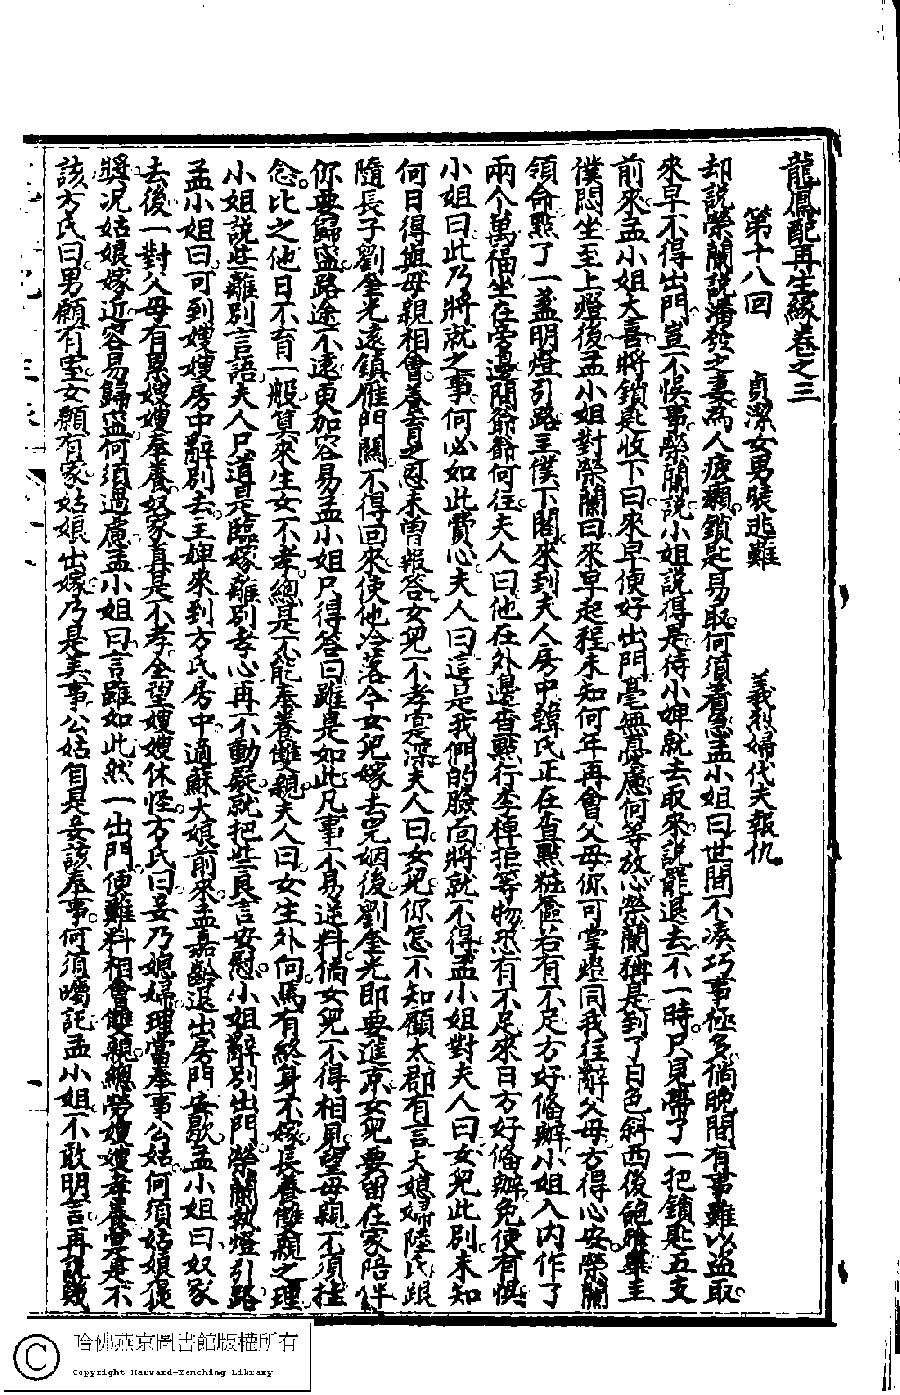 龍鳳配再生緣卷之三
第十八回 貞潔女男裝逃難 義烈婦代夫報仇
却說榮蘭說潘發之妻為人疲癩鎖匙易取何須着急孟小姐曰世間不湊巧事極多倘晚間有事難以盜取
來早不得出門豈不悞事榮蘭說小姐說得是待小婢就去取來說罷退去不一時只見帶了一把鎖匙五支
前來孟小姐大喜將鎖匙收下曰來早便好出門毫無憂慮何等放心榮蘭猶是到了日色斜西後飽飧畢主
僕悶坐至上燈後孟小姐對榮蘭曰來早起程未知何年再會父母你可掌燈同我往辭父母方得心安榮蘭
領命點了一盞明燈引路主僕下閣來到夫人房中韓氏正在查點粧奩若有不足方好俻辦小姐入內作了
兩个萬福坐在旁邊問爺爺何往夫人曰他在外邊查點行李棹拒等物不有不足來日方好俻辦免使有惧
小姐曰此乃將就之事何必如此費心夫人曰這是我們的臉面將就不得孟小姐對夫人曰女兒此別未知
何日得與母親相會養育之恩未曾報答女兒不孝寔深夫人曰女兒你怎不知顧太郡有言大媳婦陸氏跟
隨長子劉奎光遠鎮雁門關不得回來使他冷落今女兒嫁去完姻後劉奎光即要進京女兒要留在家陪伴
你要歸盜路途不遠更加容易孟小姐只得答曰雖是如此凡事不易逆料倘女兒不得相見望母親不須挂
念比之他日不育一般算來生女不孝總是不能奉養雙親夫人曰女生外向焉有終身不嫁長養雙親之理
小姐說些離別言語夫人只道是臨嫁離別孝心再不動疑就把些良言安慰小姐辭別出門榮蘭執燈引路
孟小姐曰可到嫂嫂房中辭別去主婢來到方氏房中適蘇大娘前來孟嘉齡退出房門安歇孟小姐曰奴家
去後一對父母有累嫂嫂奉養奴家真是不孝全望嫂嫂休怪方氏曰妾乃媳婦理當奉事公姑何須姑娘提
獎况姑娘嫁近容易歸盜何須過慮孟小姐曰言雖如此然一出門便難料相會雙親總勞嫂嫂孝養豈是不
該方氏曰男願有室女願有家姑娘出嫁乃是美事公姑自是妾該奉事何須囑託孟小姐不敢明言再說幾
哈佛燕京圖書館版權所有
Copyright Harvard-Yenching Library